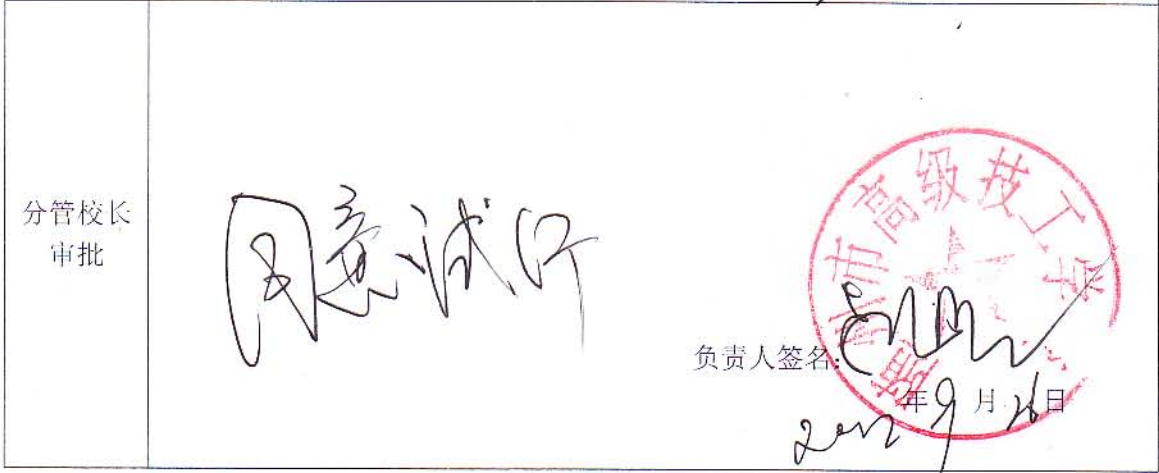 分管校长
审批
同意试行
市高级技工学
负责人签名:
年9月26日